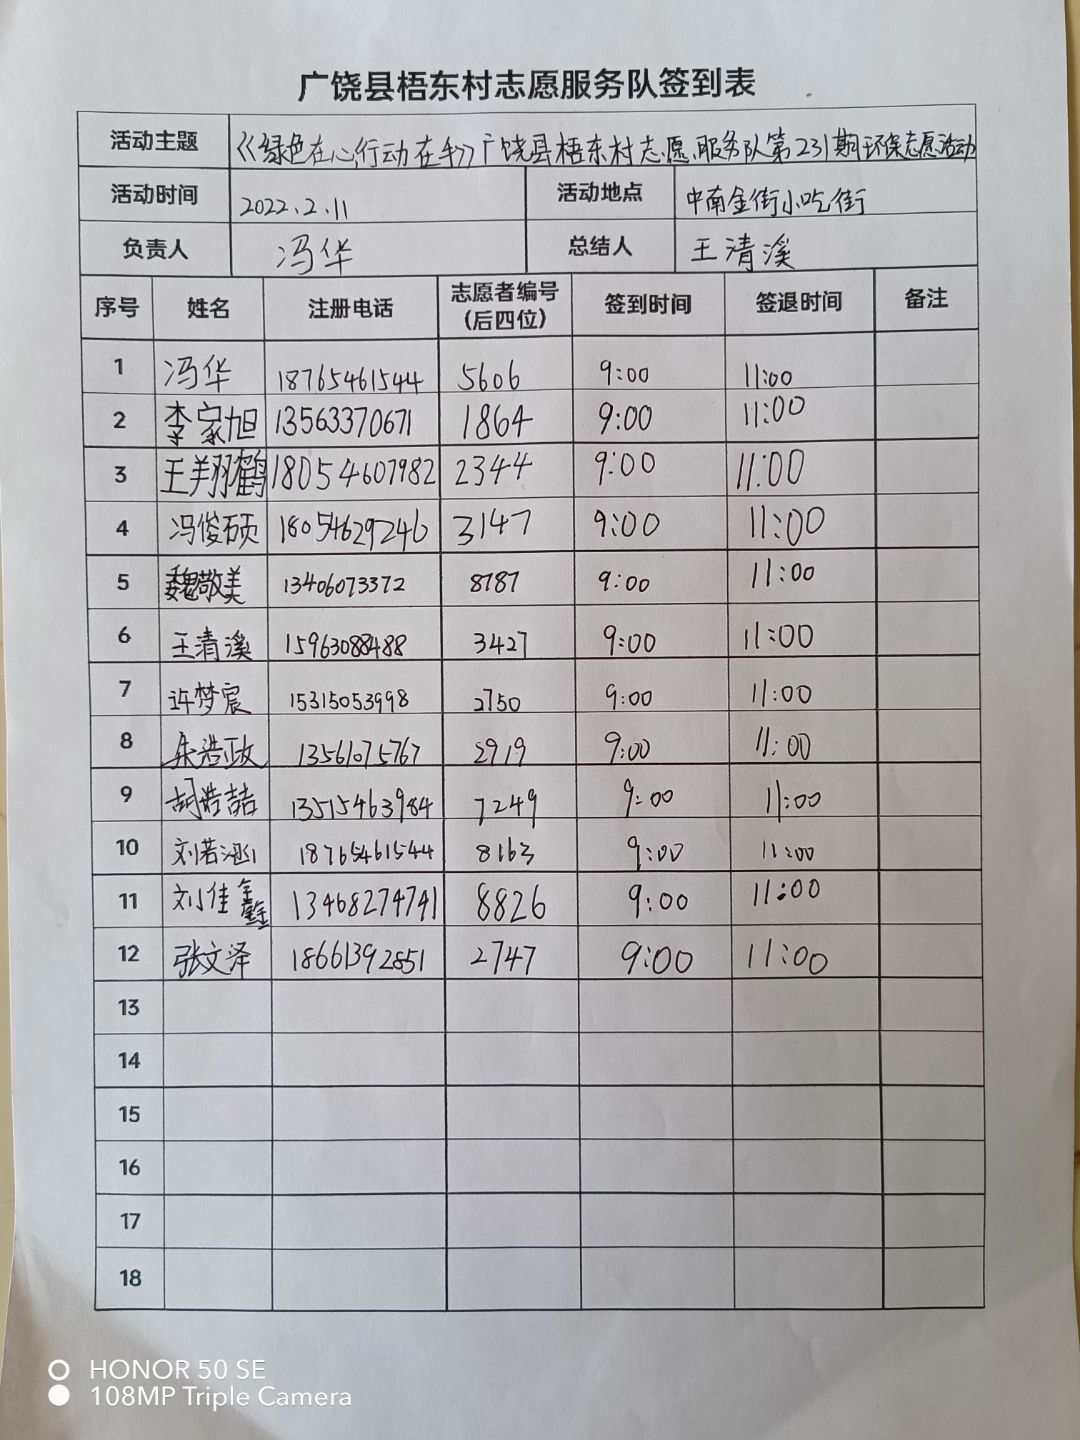 广饶县梧东村志愿服务队签到表
活动主题 《绿色在心行动在手》广饶县梧东村志愿服务队第231期环保志愿活动
活动时间 2022.2.11 活动地点 中南金街小吃街
负责人 冯华 总结人 王清溪
序号 姓名 注册电话 志愿者编号（后四位） 签到时间 签退时间 备注
1 冯华 18765461544 5606 9:00 11:00
2 李家旭 13563370671 1864 9:00 11:00
3 王翔鹤 18054607982 2344 9:00 11:00
4 冯俊硕 18054629246 3147 9:00 11:00
5 魏敬美 13406073372 8787 9:00 11:00
6 王清溪 15963088488 3427 9:00 11:00
7 许梦宸 15315053998 2750 9:00 11:00
8 朱浩政 13561075767 2919 9:00 11:00
9 胡浩喆 13515463984 7249 9:00 11:00
10 刘若涵 18765461544 8163 9:00 11:00
11 刘佳鑫 13468274741 8826 9:00 11:00
12 张文泽 18661392851 2747 9:00 11:00
13
14
15
16
17
18
HONOR 50 SE
108MP Triple Camera